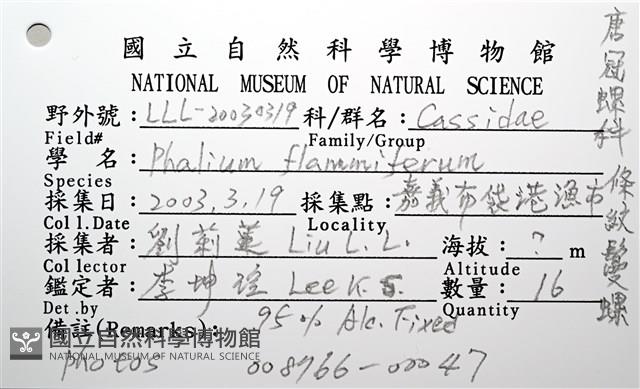 國立自然科學博物館
NATIONAL MUSEUM OF NATURAL SCIENCE
野外號：LLL-20030319 科/群名：Cassidae
Field# Family/Group
學 名：Phalium flammiferum
Species
採集日：2003.3.19 採集點：嘉義布袋港漁市
Coll.Date Locality
採集者：劉莉蓮 Liu L. L. 海拔：? m
Collector Altitude
鑑定者：李坤瑄 Lee K. S. 數量：16
Det.by Quantity
備註(Remarks)：95% Alc. Fixed
photos 008766-00047
唐冠螺科 條紋鬘螺
國立自然科學博物館
NATIONAL MUSEUM OF NATURAL SCIENCE